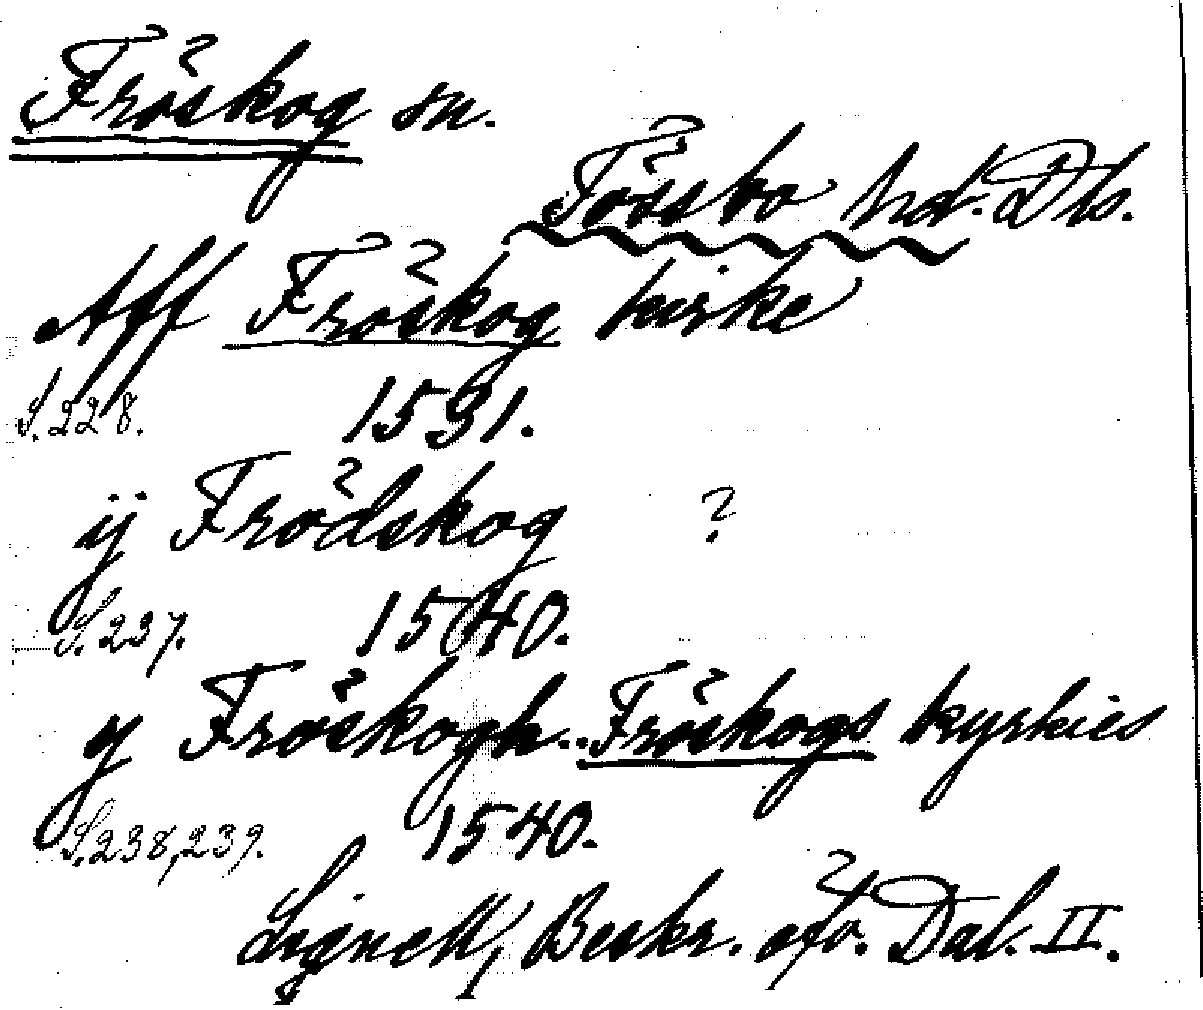 Fröskog sn.
Tössbo hd. Dls.
Aff Fröskog kirke
S.228. 1531.
ij Frödskog ?
S.237. 1540.
y Fröskogh..Fröskogs kyrkies
S.238,239. 1540.
Lignell, Beskr. öfv. Dal. II.